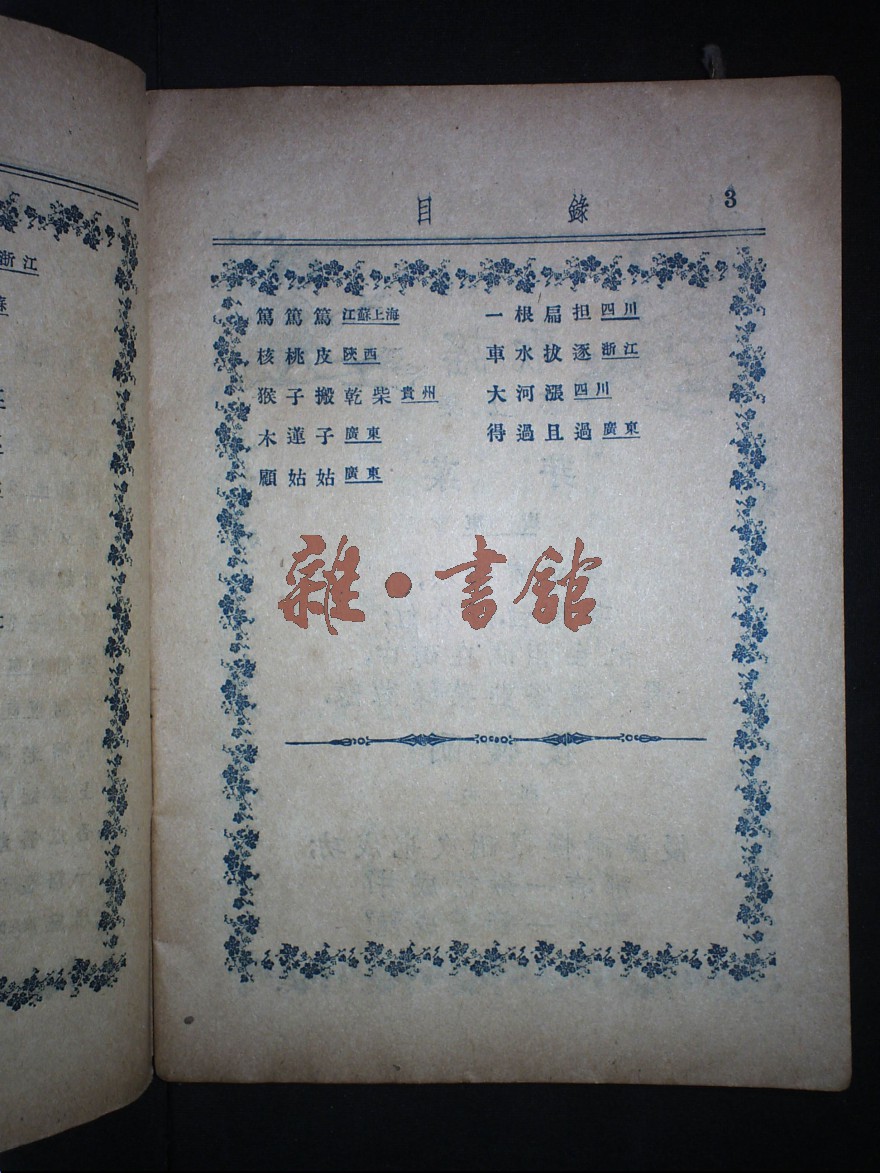 目錄 3
篤篤篤 江蘇上海
核桃皮 陝西
猴子搬乾柴 貴州
木蓮子 廣東
顧姑姑 廣東
一根扁担 四川
車水拔逐 浙江
大河漲 四川
得過且過 廣東
雜·書館
浙江